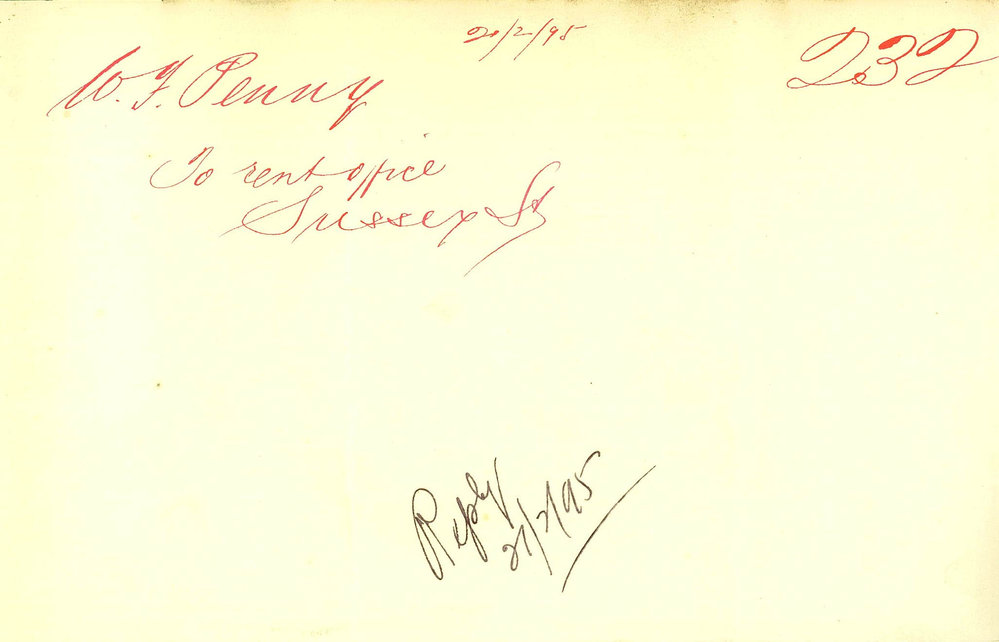 20/2/95
232
W. F. Penny
To rent office
Sussex St
Reply
21/2/95